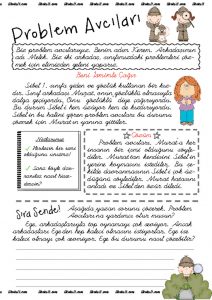 Problem Avcıları
Biz problem avcılarıyız. Benim adım Kerem. Arkadaşımın
adı Melek. Biz iki arkadaş, sınıfımızdaki problemleri çöz-
mek için elimizden geleni yaparız.
Beni İsmimle Çağır
Sibel 1. sınıfa yeni gelen ve gözlük kullanan bir kız-
dı. Sınıf arkadaşı Murat, onun gözlüklü olmasıyla
dalga geçiyordu. Onu gözlüklü diye çağırıyordu.
Bu durum Sibel'i hem üzüyor hem de kızdırıyordu.
Sibel'in bu halini gören problem avcıları bu duruma
çözüm için Murat'ın yanına gittiler.
Çözelim
Problem avcıları, Murat'a her
insanın bir ismi olduğunu söyle-
diler. Murat'tan kendisini Sibel'in
yerine koymasını istediler. Bu şe-
kilde davranmasının Sibel'i çok üz-
düğünü söylediler. Murat, hatasını
anladı ve Sibel'den özür diledi.
Sıra Sende!
Aşağıda yazan sorunu çözerek, Problem
Avcılarına yardımcı olur musun?
Ege, arkadaşlarıyla top oynamayı çok seviyor. Ancak
arkadaşları Ege'den top kaleci olmasını istiyorlar. Ege ise
kaleci olmayı çok sevmiyor. Ege bu durumu nasıl çözebilir?